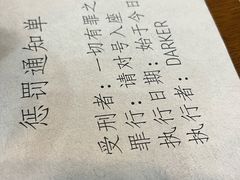 惩罚通知单
受刑者：一切有罪之
罪行：请对号入座
执行日期：始于今日
执行者：DARKER